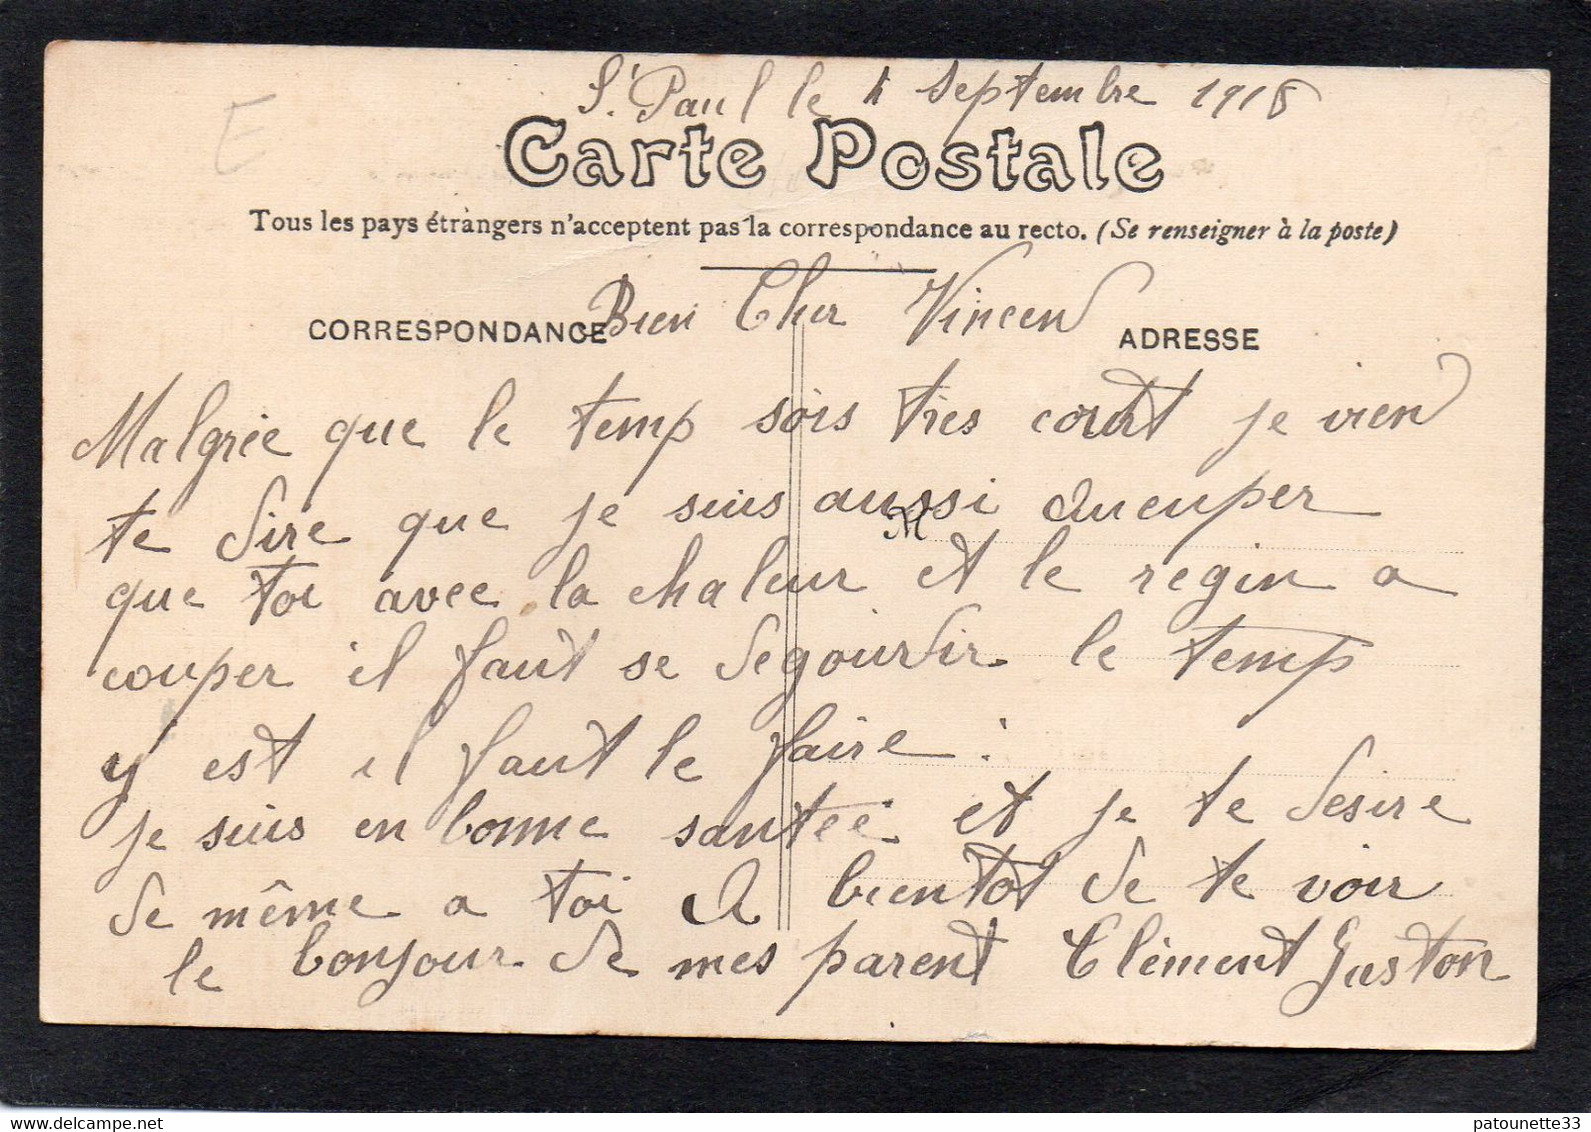 St Paul le 4 Septembre 1915
E
Carte Postale
Tous les pays étrangers n'acceptent pas la correspondance au recto. (Se renseigner à la poste)
Bien Cher Vincent
CORRESPONDANCE
ADRESSE
Malgrée que le temp sois très court je vien
te dire que je suis aussi ocuper
M
que toi avec la chaleur et le regin a
couper il faut se degourdir le temp
y est il faut le faire :
je suis en bonne santée et je te desire
de même a toi A bientot de te voir
le bonjour de mes parent Clèment Gaston
www.delcampe.net
patounette33